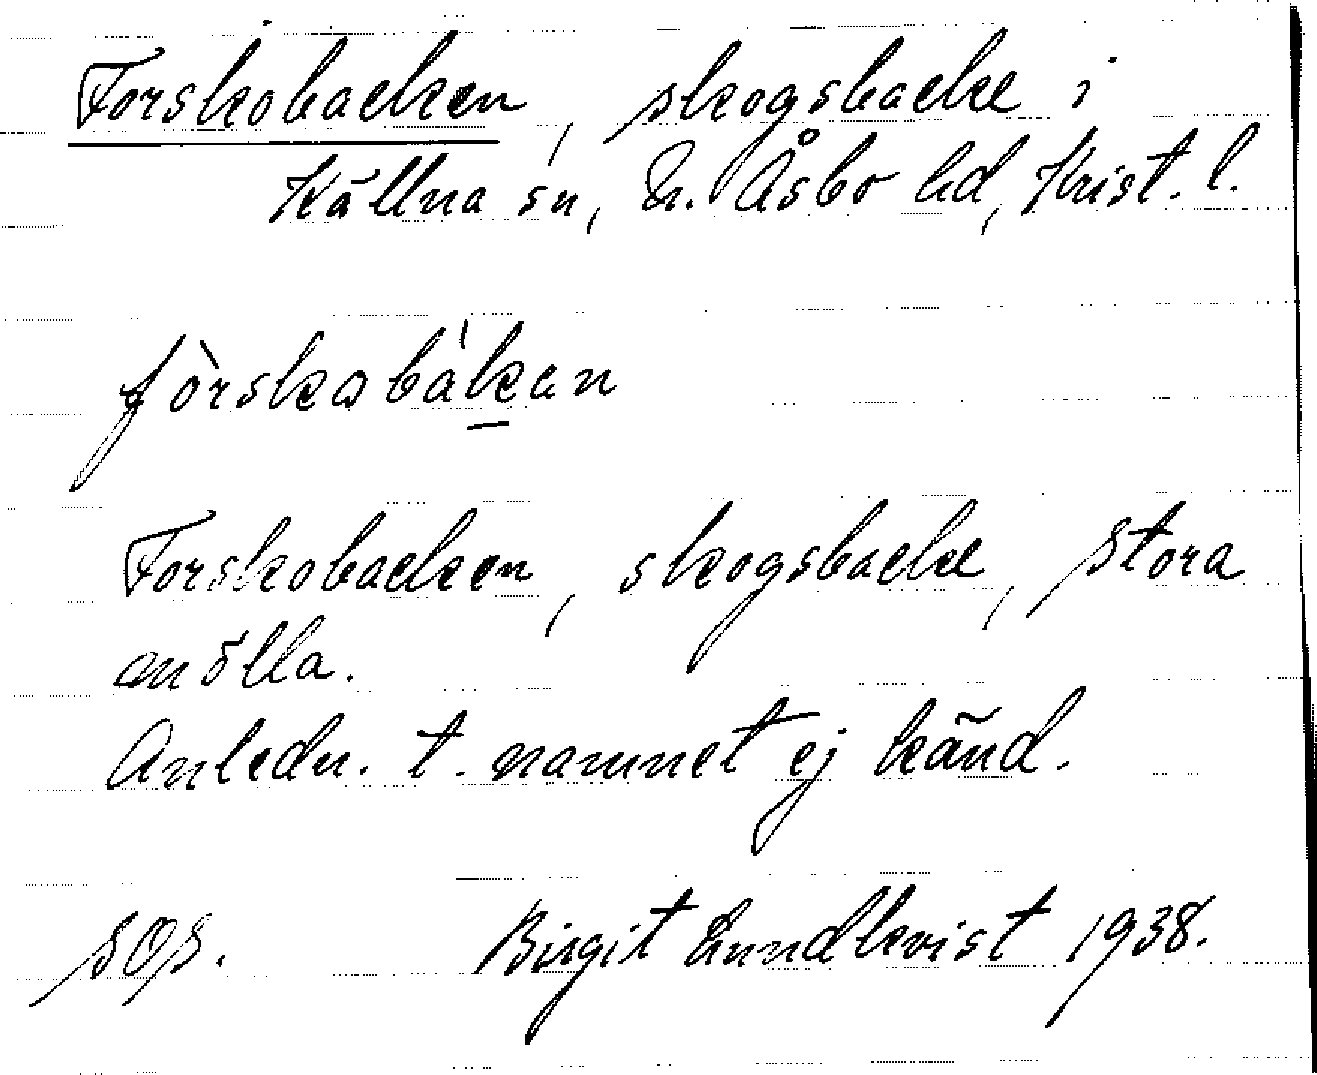 Forskobacken, skogsbacke i
Källna sn, N. Åsbo hd, Krist. l.
fòrskabàkan
Forskobacken, skogsbacke, Stora
mölla.
Anledn. t. namnet ej känd.
Birgit Lundkvist 1938.